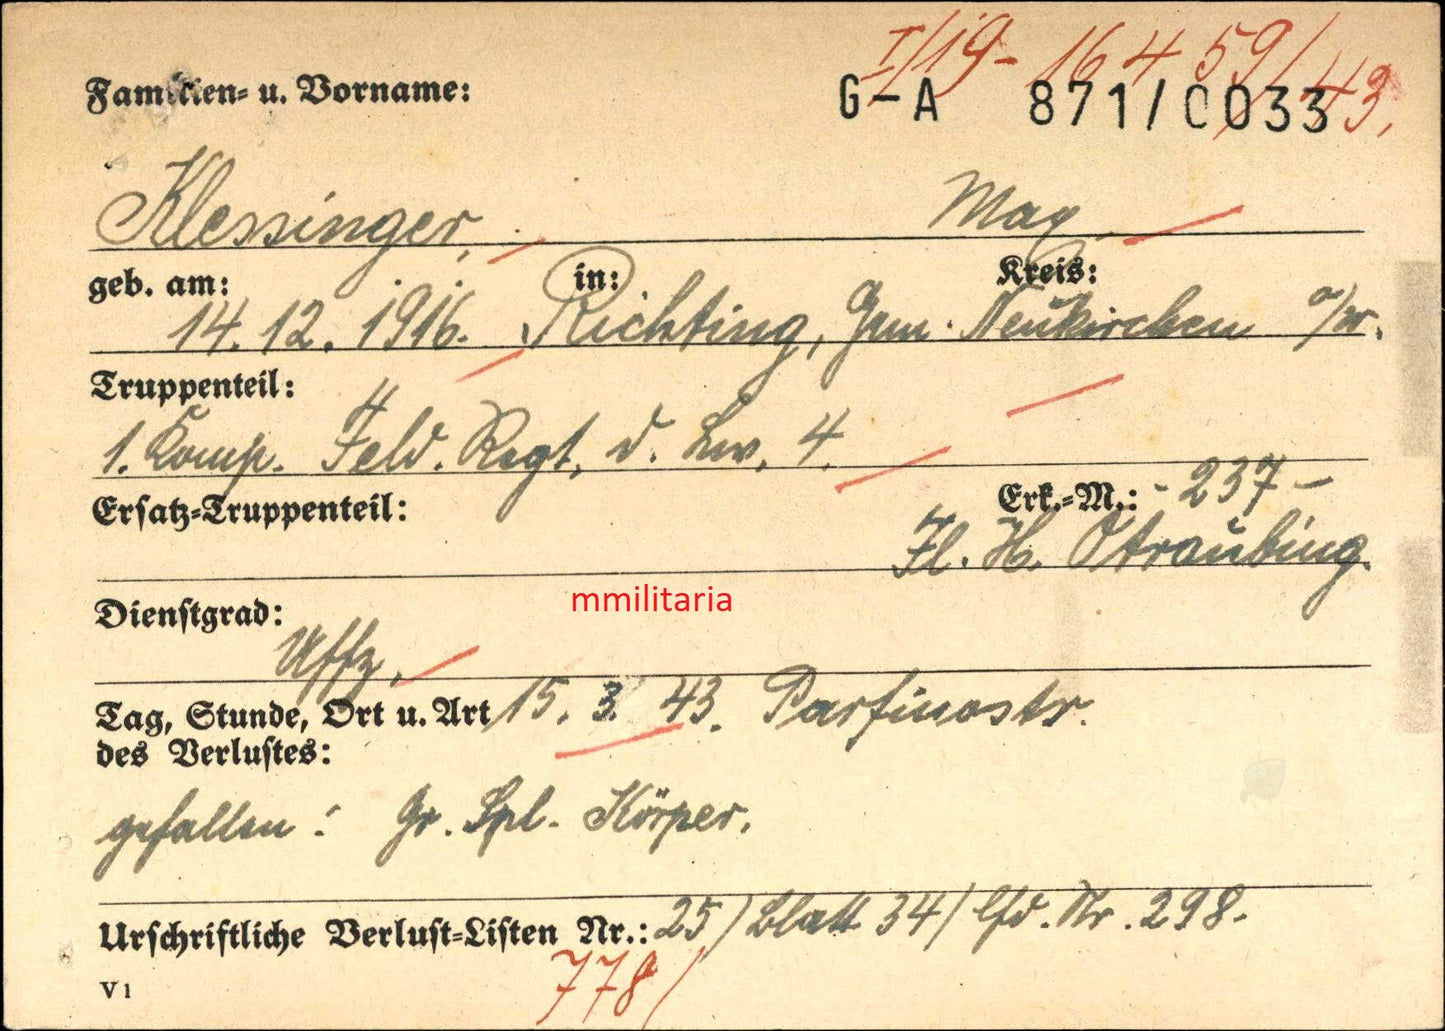 I/19-16459/43.
G-A 871/0033
Familien- u. Vorname:
Klessinger, Max
geb. am: in: Kreis:
14.12.1916. Richting, Gem. Neukirchen a/W.
Truppenteil:
1. Komp. Feld. Regt. d. Lw. 4.
Ersatz-Truppenteil: Erk.-M.: - 237 -
Fl. H. Straubing.
mmilitaria
Dienstgrad:
Uffz.
Tag, Stunde, Ort u. Art 15. 3. 43. Parfinostr.
des Verlustes:
gefallen: Gr. Spl. Körper.
Urschriftliche Verlust-Listen Nr.: 25/Blatt 34/lfd. Nr. 298.
778/
V1